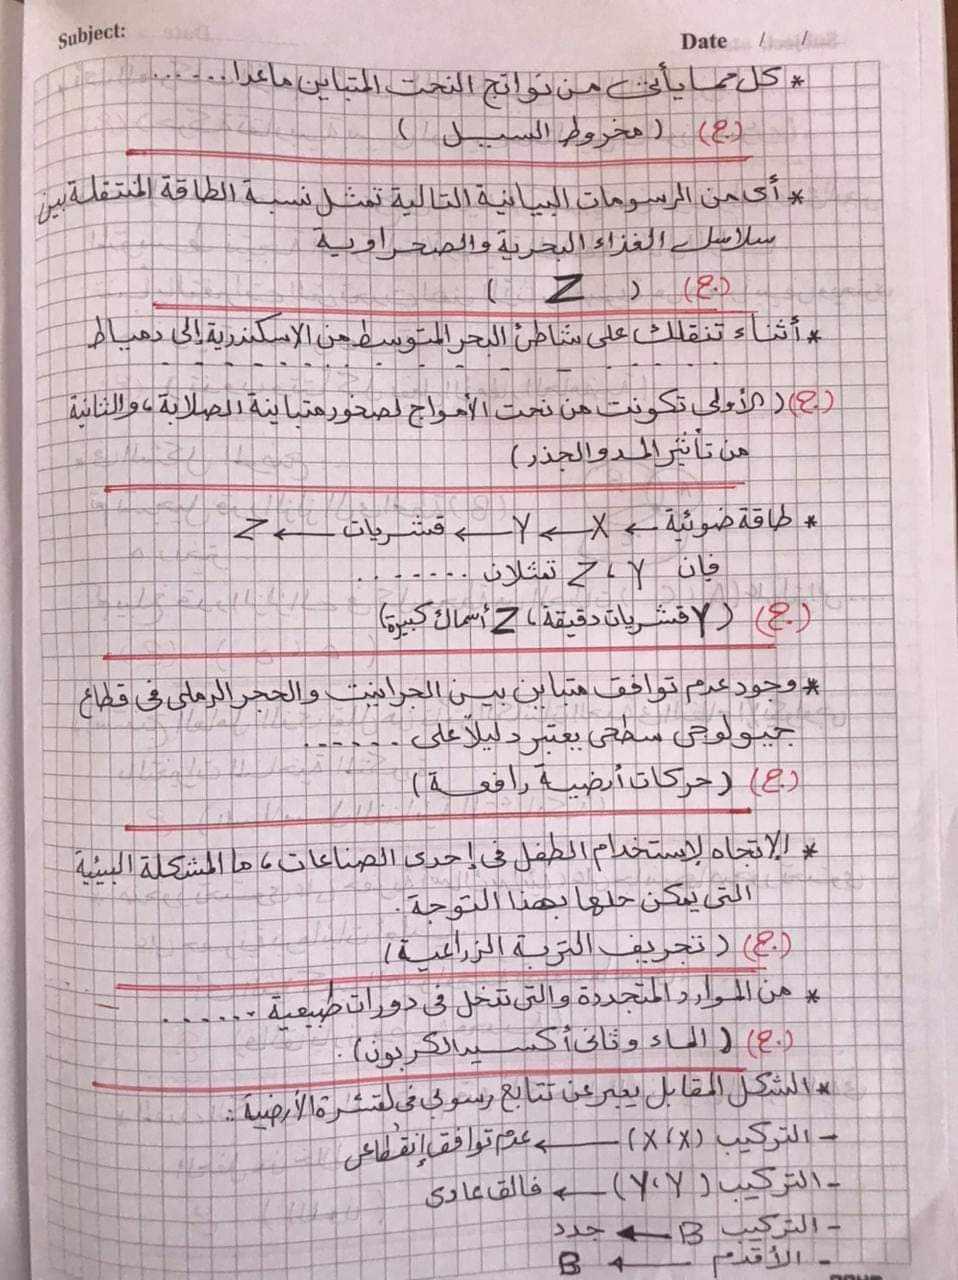 Subject:
Date / /
* كل مما يأتى من نواتج النحت المتباين ماعدا......
(ج) ( مخروط السيل )
* أى من الرسومات البيانية التالية تمثل نسبة الطاقة المنتقلة بين
سلاسل الغذاء البحرية والصحراوية
(ج) ( Z )
* أثناء تنقلك على شاطئ البحر المتوسط من الاسكندرية إلى دمياط
(ج) ( الأولى تكونت من نحت الأمواج لصخور متباينة الصلابة، والثانية
من تأثير المد والجذر)
* طاقة ضوئية ← X ← Y ← قشريات ← Z
فإن Z ، Y تمثلان ........
(ج) ( Y قشريات دقيقة، Z أسماك كبيرة)
* وجود عدم توافق متباين بين الجرانيت والحجر الرملى فى قطاع
جيولوجى سطحى يعتبر دليلاً على ......
(ج) ( حركات أرضية رافعة )
* الإتجاه لإستخدام الطفل فى إحدى الصناعات، ما المشكلة البيئية
التى يمكن حلها بهذا التوجة.
(ج) ( تجريف التربة الزراعية)
* من الموارد المتجددة والتى تدخل فى دورات طبيعية ......
(ج) ( الماء وثانى أكسيد الكربون).
* الشكل المقابل يعبر عن تتابع رسوبي في القشرة الأرضية :
- التركيب (X ، X) ← عدم توافق إنقطاعى
- التركيب (Y ، Y) ← فالق عادى
- التركيب B ← جدد
- الأقدم ← B